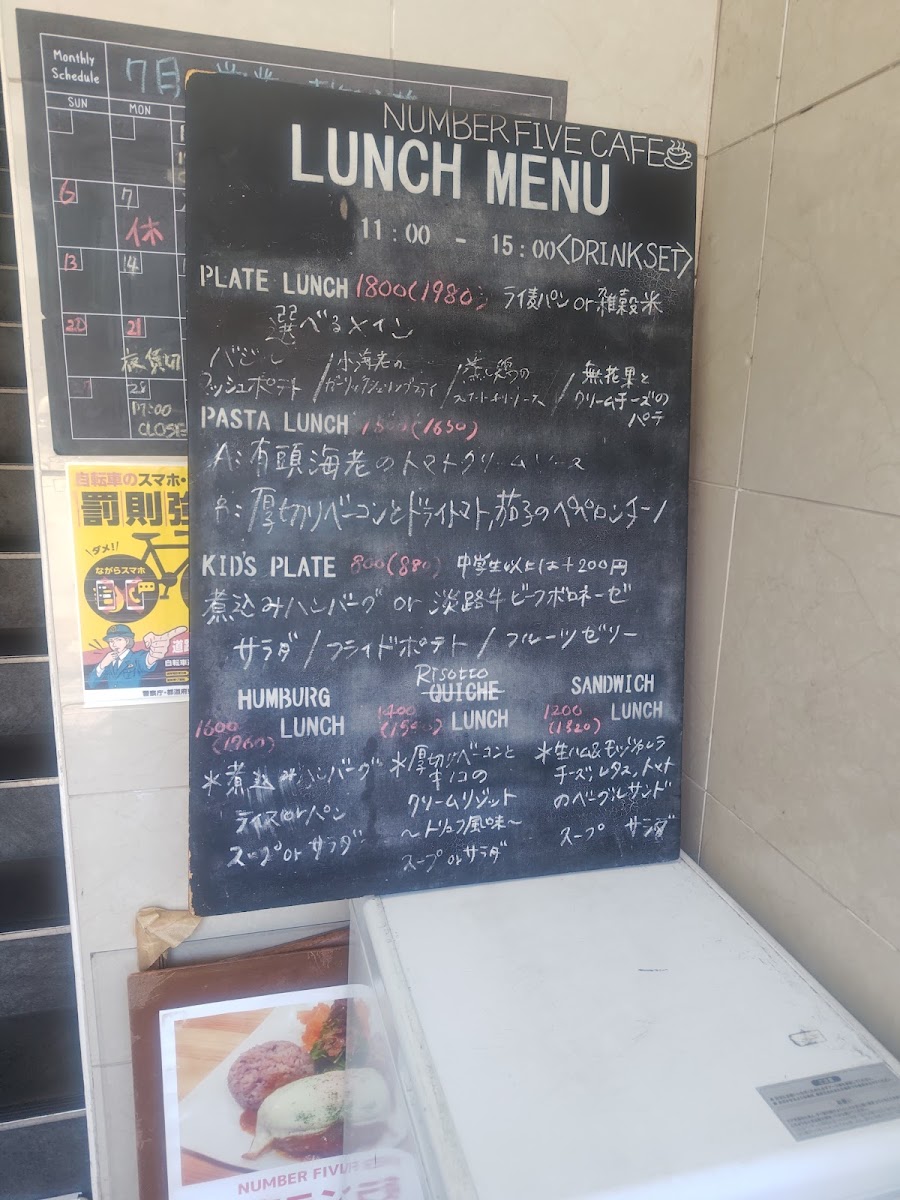 Monthly
Schedule
7月
SUN
MON
6
7
休
13
14
20
21
夜貸切
27
28
17:00
CLOSE
NUMBER FIVE CAFE
LUNCH MENU
11:00 - 15:00<DRINKSET>
PLATE LUNCH 1800(1980) ライ麦パン or 雑穀米
選べるメイン
バジル
マッシュポテト
/小海老の
ガーリックシュリンプフライ
/蒸し鶏の
スイートチリソース
/無花果と
クリームチーズの
パテ
PASTA LUNCH 1500(1650)
A:有頭海老のトマトクリームソース
B:厚切りベーコンとドライトマト,茄子のペペロンチーノ
KID'S PLATE 800(880) 中学生以上は+200円
煮込みハンバーグ or 淡路牛ビーフボロネーゼ
サラダ/フライドポテト/フルーツゼリー
HUMBURG
LUNCH
1600
(1760)
*煮込みハンバーグ
ライスorパン
スープorサラダ
Risotto
QUICHE
LUNCH
1400
(1540)
*厚切りベーコンと
キノコの
クリームリゾット
~トリュフ風味~
スープorサラダ
SANDWICH
LUNCH
1200
(1320)
*生ハム&モッツァレラ
チーズ,レタス,トマト
のベーグルサンド
スープ サラダ
自転車のスマホ・
罰則強
ダメ!!
ながらスマホ
警察庁・都道府
NUMBER FIVE